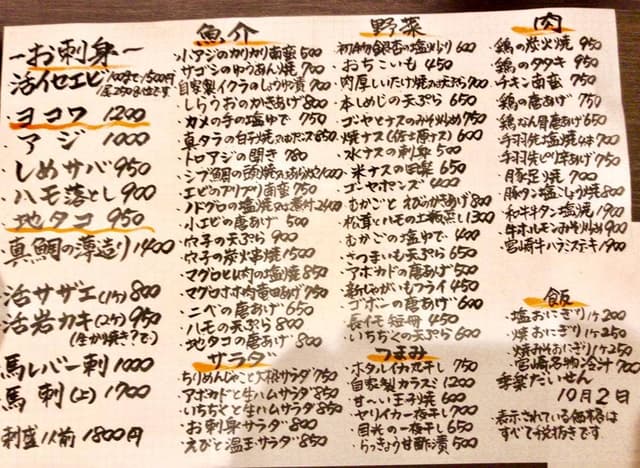 〜お刺身〜
活イセエビ 100gまで1500円
ヨコワ 1200
アジ 1000
しめサバ 950
ハモ落とし 900
地タコ 950
真鯛の薄造り 1400
活サザエ(1ケ) 800
活岩カキ(2ケ) 950
(生か焼き?で)
馬レバー刺 1000
馬刺(上) 1700
刺盛1人前 1800円
魚介
小アジのカリカリ南蛮 500
サゴシのゆうあん焼 700
自家製イクラのしょうゆ漬 700
しらうおのかきあげ 800
カメの手の塩ゆで 750
真タラの白子焼又はポンズ 850
トロアジの開き 780
シブ鯛の頭焼又はあら炊 1400
エビのプリプリ南蛮 750
ノドグロの塩焼又は煮付 2400
小エビの唐あげ 500
穴子の天ぷら 900
穴子の炭火串焼 1500
マグロとし肉の塩焼 850
マグロホホ肉竜田あげ 750
ニベの唐あげ 650
ハモの天ぷら 800
地タコの唐あげ 800
サラダ
ちりめんじゃこと大根サラダ 750
アボカドと生ハムサラダ 850
いちぢくと生ハムサラダ 850
お刺身サラダ 800
えびと温玉サラダ 850
野菜
初物銀杏の塩炒り 600
おぢこいも 450
肉厚しいたけ焼又は天ぷら 700
本しめじの天ぷら 650
ゴーヤとナスのみそ炒め 750
焼ナス(佐土原ナス) 600
水ナスの刺身 500
米ナスの田楽 650
ゴーヤポンズ 400
むかごとえびのかきあげ 800
松茸とハモの土瓶蒸し 1300
むかごの塩ゆで 400
さつまいも天ぷら 650
アボカドの唐あげ 500
新じゃがいもフライ 450
ゴボウの唐あげ 600
長イモ短冊 450
いちぢくの天ぷら 600
つまみ
ホタルイカ丸干し 750
自家製カラスミ 1200
甘〜い玉子焼 600
ヤリイカ一夜干し 700
目光の一夜干し 650
らっきょう甘酢漬 500
肉
鶏の炭火焼 950
鶏のタタキ 950
チキン南蛮 750
鶏の唐あげ 750
鶏なん骨唐あげ 650
手羽先塩焼4本 700
手羽先ピリ辛あげ 750
豚足焼 700
豚タン塩こしょう焼 800
和牛牛タン塩焼 1900
牛ホルモンみそ炒め 900
宮崎牛ハラミステーキ 1900
飯
塩おにぎり 1ケ200
焼おにぎり 1ケ250
焼みそおにぎり 1ケ250
宮崎名物冷汁 700
季楽だいせん
10月2日
表示されている価格は
すべて税抜きです。